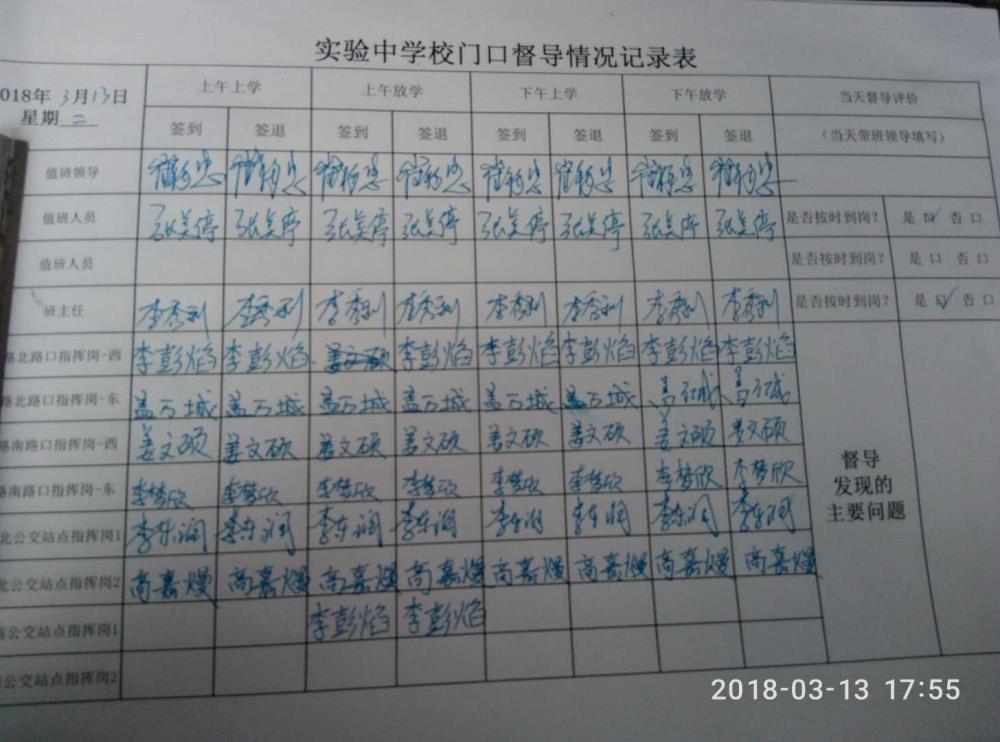 实验中学校门口督导情况记录表
018年 3月13日
星期二
上午上学 上午放学 下午上学 下午放学 当天督导评价
签到 签退 签到 签退 签到 签退 签到 签退 (当天带班领导填写)
值班领导
值班人员 张 停 张 停 张 停 张 停 张 停 张 停 张 停 张 停 是否按时到岗? 是 否 口
值班人员 是否按时到岗? 是 口 否 口
班主任 李秀利 李秀利 李秀利 李秀利 李秀利 李秀利 李秀利 李秀利 是否按时到岗? 是 否 口
路北路口指挥岗-西 李彭焰 李彭焰 李彭焰 李彭焰 李彭焰 李彭焰 李彭焰
路北路口指挥岗-东 孟万城 孟万城 孟万城 孟万城 孟万城 孟万城
路南路口指挥岗-西 姜文硕 姜文硕 姜文硕 姜文硕 姜文硕 姜文硕 姜文硕 姜文硕
路南路口指挥岗-东 李梦欣 李梦欣 李梦欣 李梦欣 李梦欣 李梦欣 李梦欣 李梦欣
北公交站点指挥岗1 李东润 李东润 李东润 李东润 李东润 李东润 李东润 李东润
北公交站点指挥岗2 高嘉熳 高嘉熳 高嘉熳 高嘉熳 高嘉熳 高嘉熳 高嘉熳 高嘉熳
南公交站点指挥岗1 李彭焰 李彭焰
公交站点指挥岗2
督导
发现的
主要问题
2018-03-13 17:55